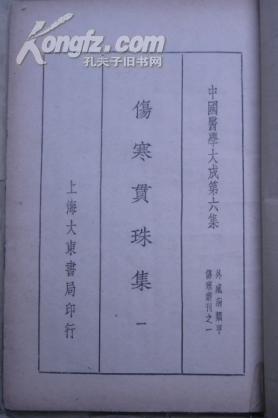 Kongfz.com
孔夫子旧书网
中國醫學大成第六集
外感病類亨
傷寒叢刊之一
傷寒貫珠集 一
上海大東書局印行